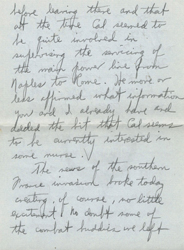 before leaving there and that
at the time Cal seemed to
be quite involved in
supervising the servicing of
the main power line from
Naples to Rome. He more or
less affirmed what information
you and I already have and
added the bit that Cal seems
to be currently interested in
some nurse.
The news of the southern
France invasion broke today
creating, of course, no little
excitement. No doubt some of
the combat buddies we left